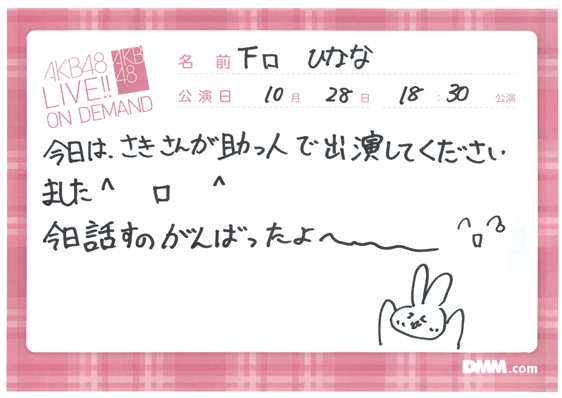 AKB48
LIVE!!
ON DEMAND
AKB
48
名前 下口 ひなな
公演日 10月 28日 18:30 公演
今日は、さきさんが助っ人で出演してください
ました ^ ロ ^
今日話すのがんばったよ〜
DMM.com